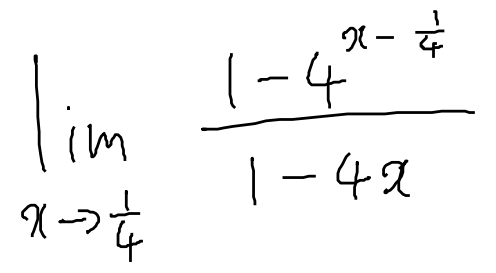 lim_{x→1/4} (1-4^{x-1/4})/(1-4x)